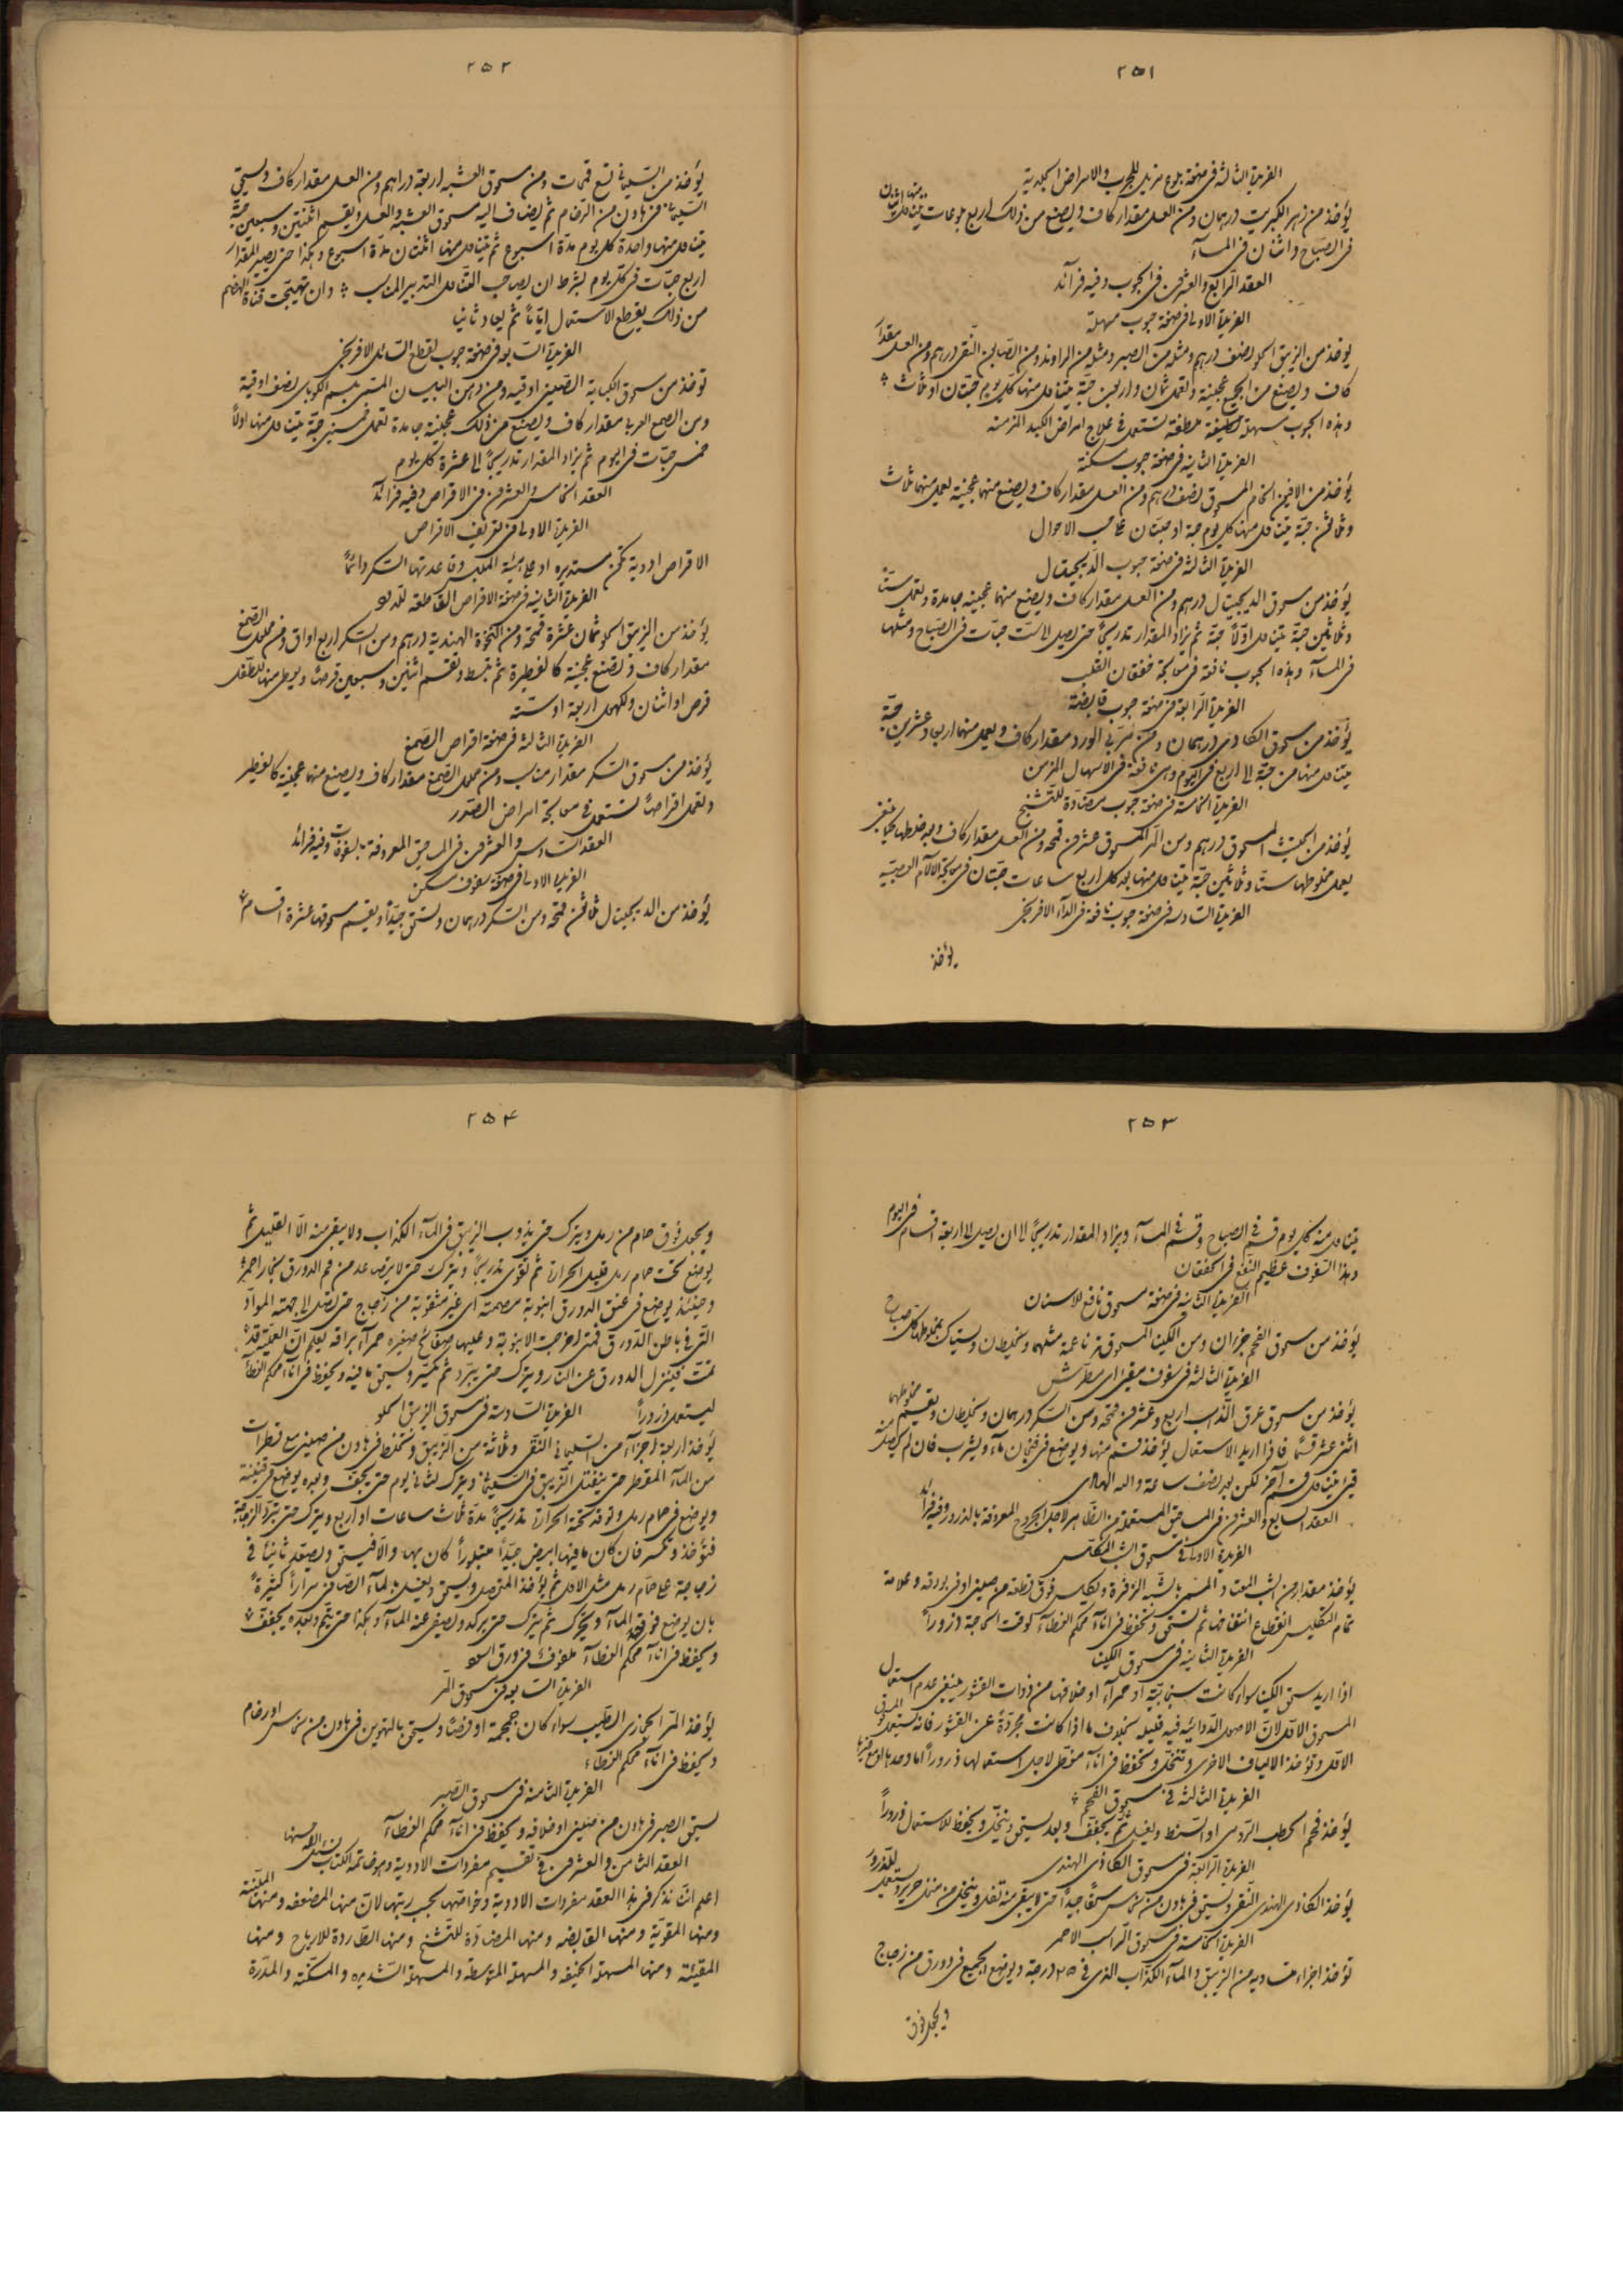 ٢٥١
الفريدة الثالثة في صفة بلوع مزيل للجرب والامراض الجلدية
يؤخذ من زهر الكبريت درهمان ومن العسل مقدار كاف ويصنع من ذلك اربع بلوعات يتناول منها اثنان
في الصباح واثنان في المسآء
العقد الرابع والعشرون في الحبوب وفيه فرآئد
الفريدة الاولى في صفة حبوب مسهلة
يؤخذ من الزيبق الحلو نصف درهم ومثله من الصبر ومثله من الراوند ومن الصابون النقي درهم ومن العسل مقدار
كاف ويصنع من الجميع عجينة وتعمل ثمان واربعين حبة يتناول منها كل يوم حبتان او ثلاث
وهذه الحبوب سهلة لطيفة ملطفة تستعمل في علاج امراض الكبد المزمنة
الفريدة الثانية في صفة حبوب مسكنة
يؤخذ من الافيون الخام المسحوق نصف درهم ومن العسل مقدار كاف ويصنع منهما عجينة يعمل منها ثلاث
وثلاثون حبة يتناول منها كل يوم حبة او حبتان على حسب الاحوال
الفريدة الثالثة في صفة حبوب الديجيتال
يؤخذ من مسحوق الديجيتال درهم ومن العسل مقدار كاف ويصنع منهما عجينة جامدة وتعمل ستا
وثلاثين حبة يتناول اولاً حبة ثم يزاد المقدار تدريجًا حتى يصل الى ست حبات في الصباح ومثلها
في المسآء وهذه الحبوب نافعة في معالجة خفقان القلب
الفريدة الرابعة في صفة حبوب قابضة
يؤخذ من مسحوق الكادي درهمان ومن مربى الورد مقدار كاف ويعمل منهما اربعا وعشرين حبة
يتناول منها من حبة الى اربع في اليوم وهي نافعة في الاسهال المزمن
الفريدة الخامسة في صفة حبوب مضادة للتشنج
يؤخذ من الحلتيت المسحوق درهم ومن المر المسحوق عشرون قمحة ومن العسل مقدار كاف وبعد خلطها كما ينبغي
يعمل مخلوطها ستا وثلاثين حبة يتناول منها بعد كل اربع ساعات حبتان في معالجة الآلام العصبية
الفريدة السادسة في صفة حبوب نافعة في الدآء الافرنجي
يؤخذ
٢٥٢
يؤخذ من السليماني تسع قمحات ومن مسحوق العشبه اربعة دراهم ومن العسل مقدار كاف ويسحق
السليماني في هاون من الرخام ثم يضاف اليه مسحوق العشبه والعسل ويقسم اثنتين وسبعين حبة
يتناول منها واحدة كل يوم مدة اسبوع ثم يتناول منها اثنتان مدة اسبوع وهكذا حتى يصير المقدار
اربع حبات في كل يوم بشرط ان يصاحب التناول التدبير المناسب وان تهيجت قناة الهضم
من ذلك يقطع الاستعمال اياماً ثم يعاد ثانيا
الفريدة السابعة في صفة حبوب لقطع السائل الافرنجي
تؤخذ من مسحوق الكبابة الصيني اوقية ومن دهن البلسان المسمى ببلسم الكوباي نصف اوقية
ومن الصمغ العربي مقدار كاف ويصنع من ذلك عجينة جامدة تعمل خمسين حبة يتناول منها اولاً
خمس حبات في اليوم ثم يزاد المقدار تدريجًا الى عشرة كل يوم
العقد الخامس والعشرون في الاقراص وفيه فرآئد
الفريدة الاولى في تعريف الاقراص
الاقراص ادوية تكون مستديره او على هيئة الملبس وقاعدتها السكر دائماً
الفريدة الثانية في صفة الاقراص القاتلة للدود
يؤخذ من الزيبق الحلو ثمان عشرة قمحة ومن النخوة الهندية درهم ومن السكر اربع اواق ومن محلول الصمغ
مقدار كاف وتصنع عجينة كالفطيرة ثم تبسط وتقسم اثنين وسبعين قرصًا ويعطى منها للطفل
قرص او اثنان وللكهل اربعة او ستة
الفريدة الثالثة في صفة اقراص الصمغ
يؤخذ من مسحوق السكر مقدار مناسب ومن محلول الصمغ مقدار كاف ويصنع منهما عجينة كالفطير
وتعمل اقراصًا تستعمل في معالجة امراض الصدور
العقد السادس والعشرون في المساحيق المعروفة بالسفوفات وفيه فرائد
الفريدة الاولى في صفة سفوف مسكن
يؤخذ من الديجيتال ثلاثون قمحة ومن السكر درهمان وتسحق جيداً ويقسم مسحوقها عشرة اقسام
٢٥٣
يتناول منه كل يوم قسم في الصباح وقسم في المسآء ويزاد المقدار تدريجًا الى ان يصل الى اربعة اقسام في اليوم
وهذا السفوف عظيم النفع في الخفقان
الفريدة الثانية في صفة مسحوق نافع للاسنان
يؤخذ من مسحوق الفحم جزءان ومن الكينا المسحوقة ناعمة مثلهما ويخلطان ويستاك بمخلوطها كل صباح
الفريدة الثالثة في سفوف مقيئ اي مطرش
يؤخذ من مسحوق عرق الذهب اربع وعشرون قمحة ومن السكر درهمان ويخلطان ويقسم مخلوطهما
اثني عشر قسمًا فاذا اريد الاستعمال يؤخذ قسم منها ويوضع في فنجان مآء ويشرب فان لم يحصل منه
قيئ يتناول قسم آخر لكن بعد نصف ساعة والله الهادي
العقد السابع والعشرون في المساحيق المستعملة من الظاهر لاجل الجروح المعروفة بالذرور وفيه فرآئد
الفريدة الاولى في مسحوق الشب المكلس
يؤخذ مقدار من الشب المعتاد المسمى بالشبة الزفرة ويكلس فوق قطعة من صيني او في بودقه وعلامة
تمام التكليس انقطاع انتفاخها ثم تسحق وتحفظ في انآء محكم الغطآء لوقت الحاجة ذروراً
الفريدة الثانية في مسحوق الكينا
اذا اريد سحق الكينا سواء كانت سنجابية او حمرآء او خلافهما من ذوات القشور ينبغي عدم استعمال
المسحوق الاول لان الاصول الدوائيه فيه قليله بخلاف ما اذا كانت مجردة عن القشور فانه يستعمل المسحوق
الاول وتؤخذ الالياف الاخرى وتنخل وتحفظ في انآء مغطى لاجل استعمالها ذروراً اما وحدها او مع غيرها
الفريدة الثالثة في مسحوق الفحم
يؤخذ فحم الحطب الرومي او السنط ويغسل ثم يجفف وبعد يسحق وينخل ويحفظ للاستعمال ذروراً
الفريدة الرابعة في مسحوق الكادي الهندي
يؤخذ الكادي الهندي النقي ويسحق في هاون من نحاس سحقًا جيدًا حتى لا يبقى منه تفل وينخل من منخل حرير ويستعمل للذرور
الفريدة الخامسة في مسحوق الراسب الاحمر
تؤخذ اجزاء متساويه من الزيبق والمآء الكذاب الذي في ٢٥ درجة ويوضع الجميع في دورق من زجاج
ويجعل فوق
٢٥٤
ويجعل فوق حمام من رمل ويترك حتى يذوب الزيبق في المآء الكذاب ولا يبقى منه الا القليل ثم
يوضع تحت حمام رمل قليل الحرارة ثم تقوى تدريجًا ويترك حتى لا يتصاعد من فم الدورق بخار احمر
وحينئذ يوضع في عنق الدورق انبوبة مصمته اي غير مثقوبة من زجاج حتى تصل الى جهة المواد
التي في باطن الدورق فمتى اخرجت الانبوبة وعليها صفائح صغيره حمرآء براقه يعلم ان العملية قد
تمت فينزل الدورق عن النار ويترك حتى يبرد ثم يكسر ويسحق ما فيه ويحفظ في انآء محكم الغطآء
ليستعمل ذروراً الفريدة السادسة في مسحوق الزيبق الحلو
يؤخذ اربعة اجزآء من السليماني النقي وثلاثة من الزيبق وتخلط في هاون من صيني مع قطرات
من المآء المقطر حتى ينقتل الزيبق في السليماني ويترك لثاني يوم حتى يجف وبعده يوضع في قنينة
ويوضع في حمام رمل وتوقد تحته الحرارة تدريجًا مدة ثلاث ساعات او اربع ويترك حتى تبرد الزجاجة
فتؤخذ وتكسر فان كان ما فيها ابيض جيداً متبلوراً كان بها والا فيسحق ويصعد ثانياً في
زجاجة على حمام رمل مثل الاول ثم يؤخذ المتحصل ويسحق ويغسل بالمآء الصافي مراراً كثيرةً
بان يوضع فوقه المآء ويحرك ثم يترك حتى يركد ويصفى عنه المآء وهكذا حتى يتم وبعده يجفف
ويحفظ في انآء محكم الغطآء ملفوف في ورق اسود
الفريدة السابعة في مسحوق المر
يؤخذ المر الحجازي الطيب سواء كان جمجمة او قرصًا ويسحق بالتهوين في هاون من نحاس او رخام
ويحفظ في انآء محكم الغطآء
الفريدة الثامنة في مسحوق الصبر
يسحق الصبر في هاون من صيني او خلافه ويحفظ في انآء محكم الغطآء
العقد الثامن والعشرون في تقسيم مفردات الادوية وهو خاتمة الكتاب
اعلم انا نذكر في هذا العقد مفردات الادوية وخواصها بحسب رتبها لان منها المضعفه ومنها الملينة
ومنها المقوية ومنها القابضه ومنها المضادة للتشنج ومنها الطاردة للارياح ومنها
المقيئة ومنها المسهلة الخفيفه والمسهلة المتوسطه والمسهلة الشديده والمسكنة والمدرة